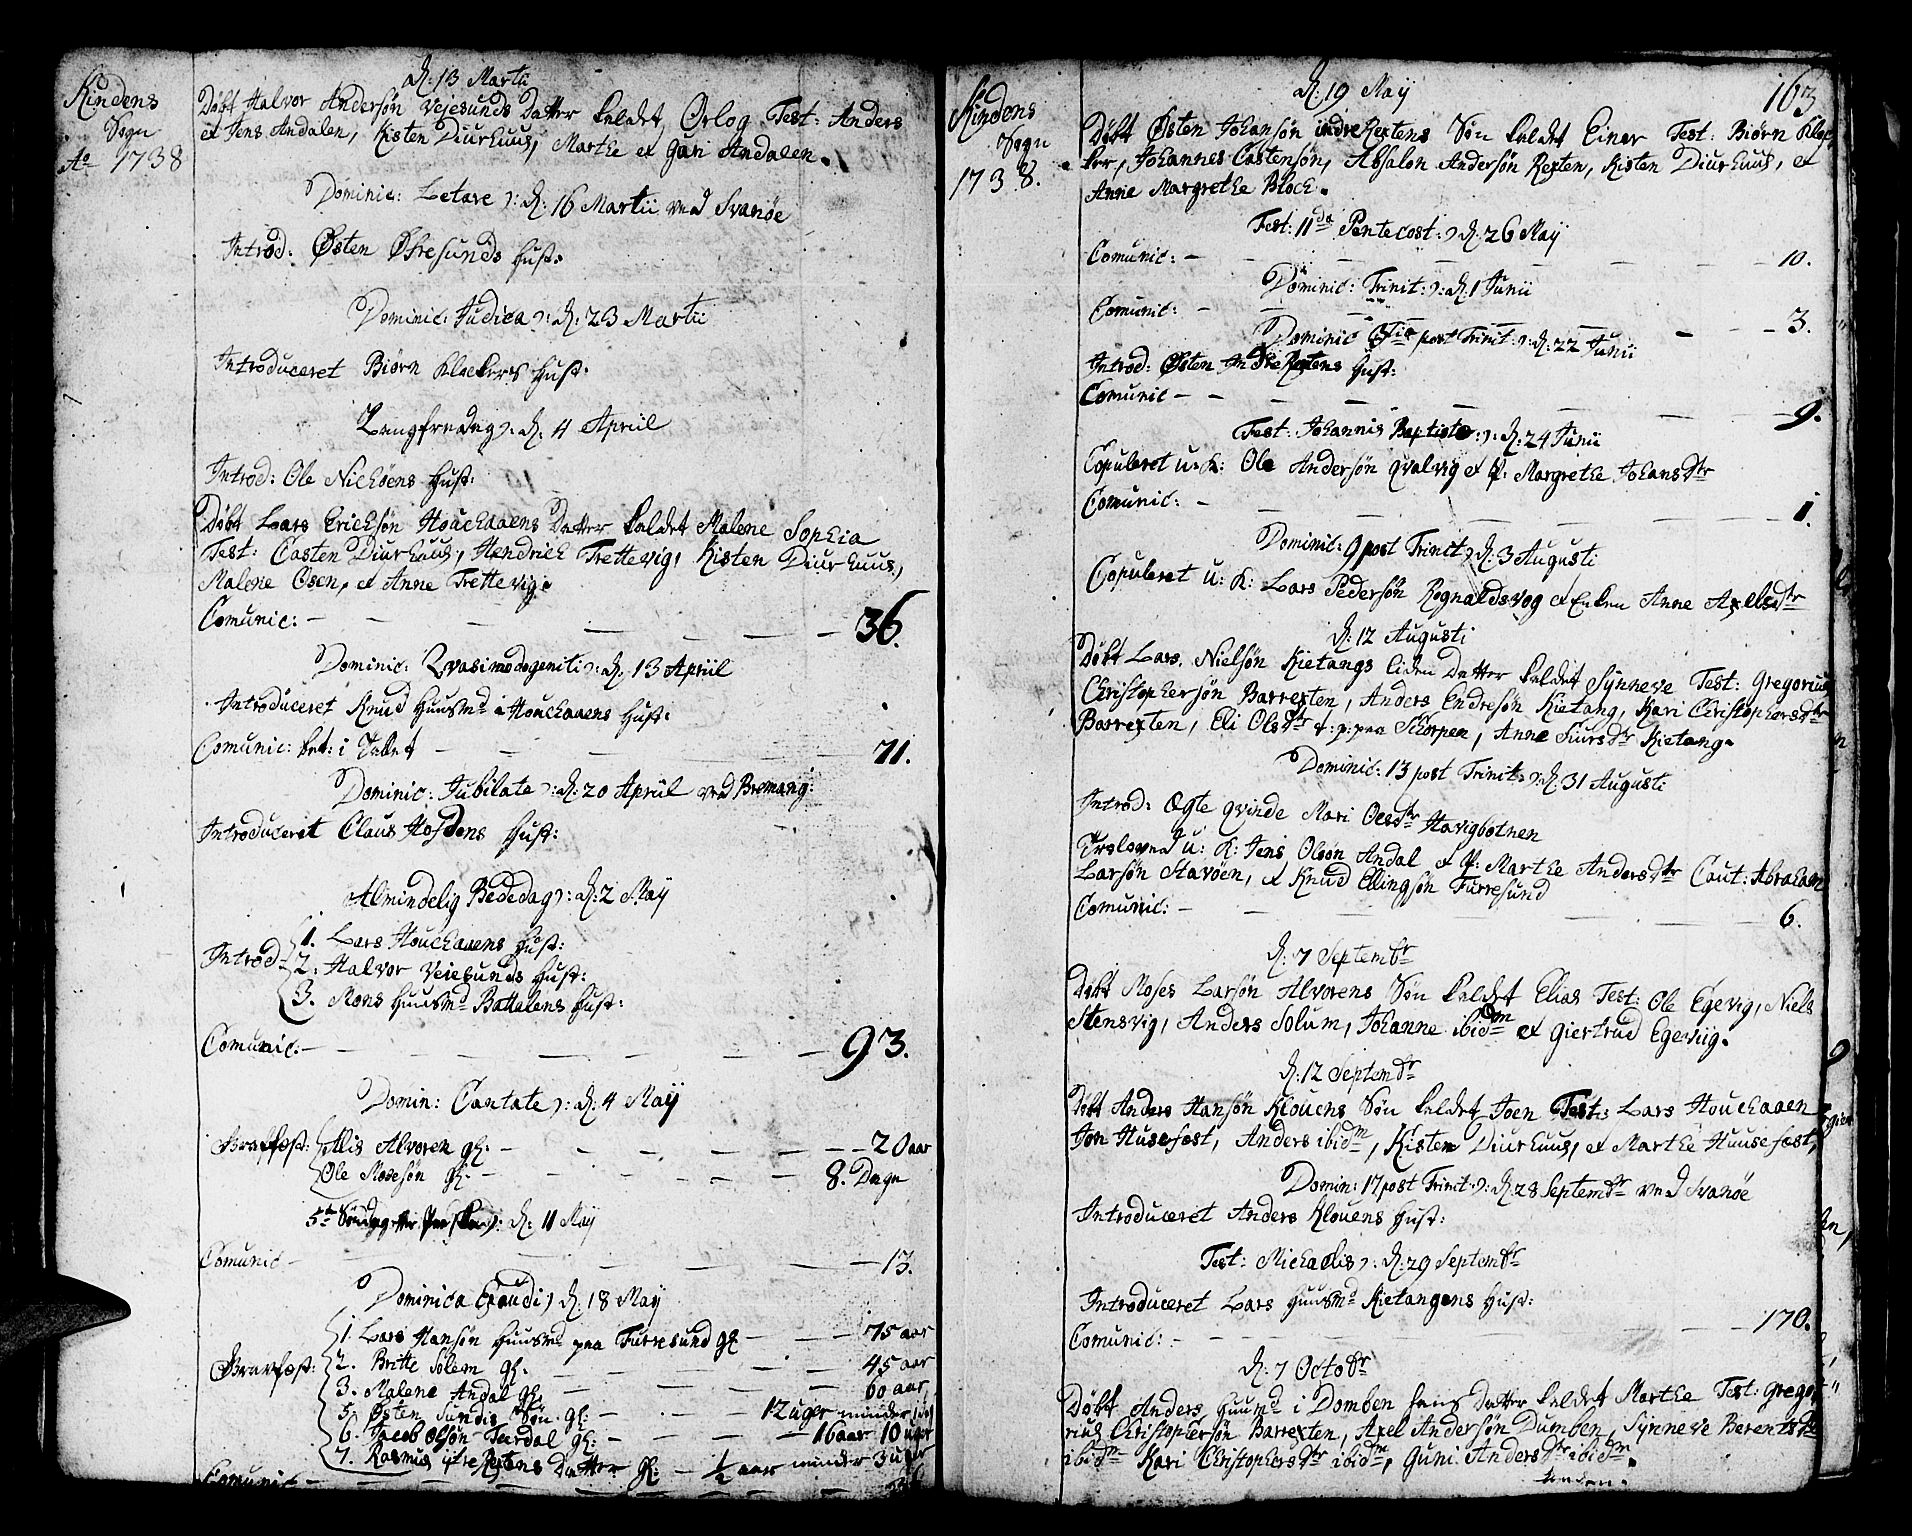 Kindens
Sogn
Ao 1738
d: 13 Martii
Døbt Halvor Andersøn Vejesunds Datter kaldet Ørlog Test: Anders
et Jens Andalen, Kisten Diurhuus, Marthe et Gari Andalen.
Dominic: Letare ɔ: d: 16 Martii ved Svanøe
Introd: Østen Øfresunds Hust:
Dominic: Judica ɔ: d: 23 Martii
Introduceret Biørn Klockers Hust:
Langfredag ɔ: d: 4 Apriil
Introd: Ole Nichøens Hust:
Døbt Lars Erichsøn Houchaaens Datter kaldet Malene Sophia
Test: Casten Diurhuus, Hendrich Trettevig, Kisten Diurhuus,
Malene Osen, et Anne Trettevig.
Comunic: — 36.
Dominic: Qvasimodogeniti ɔ: d: 13 Apriil
Introduceret Knud Huusmd i Houchaaens Hust:
Comunic: i Talet — 71.
Dominic: Jubilate ɔ: d: 20 Apriil ved Bremang:
Introduceret Claus Hosdens Hust:
Almindelig Bededag ɔ: d: 2 May
Introd: 1. Lars Houchaaens Hust:
2: Halvor Vejesunds Hust:
3. Mons Huusmd Battalens Hust:
Comunic: — 93.
Domin: Cantate ɔ: d: 4 Maij
Gravfæst: Allis Alvoren gl: — 20 aar
Ole Mosesøn gl: — 8. Dage
5te Søndag efter Paaske ɔ: d: 11 May
Comunic — 13.
Dominica Exaudi ɔ: d: 18 May
1. Lars Hansøn Huusmd paa Furresund gl — 75 aar
Gravfæst: 2. Britte Solem gl. — 45 aar
3. Malene Andal gl: — 60 aar,
5. Østen Sunds Søn gl: — 12 uger minder
6. Jacob Olsøn Tardal gl: — 16 aar 10 uger
7. Rasmus Ytre Rextens Datter gl: — ½ aar minder 3 uger
Comunic —
163
Kindens
Sogn
1738.
d: 19 May
Døbt Østen Johansøn indre Rextens Søn kaldet Einer Test: Biørn Kloc-
ker, Johannes Castensøn, Absalon Andersøn Rexten, Kisten Diurhuus, et
Anne Margrethe Bloch.
Fest: 11da Pentecost: ɔ: d: 26 Maij
Comunic: — 10.
Dominic: Trinit: ɔ: d: 1 Junii
Comunic: — 3.
Dominic 3tia post Trinit: ɔ: d: 22 Junii
Introd: Østen Indre Rextens Hust:
Comunic — 9.
Fest: Johannis Baptistæ ɔ: d: 24 Junii
Copuleret u: K: Ole Andersøn qvalvig et P: Margrethe Johansdtr
Comunic: — 1.
Dominic: 9 post Trinit ɔ: d: 3 Augusti
Copuleret u: K: Lars Pedersøn Rognaldsvog et Enken Anne Axelsdtr
d: 12 Augusti
Døbt Lars Nielsøn Kietangs liden Datter kaldet Synneve Test: Gregorius
Christophersøn Barrexten, Anders Endresøn Kietang, Kari Christophersdtr
Barrexten, Eli Olsdtr paa Skorpen, Anne Siursdtr Kietang.
Dominic: 13 post Trinit ɔ: d: 31 Augusti
Introd: Ægte qvinde Mari Olsdtr Havigbotnen
Troloved u: K: Jens Olsøn Andal et P: Marthe Andersdtr Caut: Abraham
Larsøn Stavøen, et Knud Ellingsøn Furresund
Comunic: — 6.
d: 7 Septembr
Døbt Moses Larsøn Alvorens Søn kaldet Elias Test: Ole Egevig, Niels
Stensvig, Anders Solum, Johanne ibidm et Giertrud Egeviig.
d: 12 Septembr
Døbt Anders Hansøn Klouens Søn kaldet Joen Test: Lars Houchaaen
Jon Husefæst, Anders ibidm, Kisten Diurhuus, et Marthe Huusefæst,
Domin: 17 post Trinit ɔ: d: 28 Septembr ved Svanøe
Introduceret Anders Klouens Hust:
Fest: Michaelis ɔ: d: 29 Septembr
Introduceret Lars Huusmd Kietangens Hust:
Comunic: — 170.
d: 7 Octobr
Døbt Anders Huusmd i Domben hans Datter kaldet Marthe Test: Grego-
rius Christophersøn Barrexten, Axel Andersøn Dumben, Synneve Berentsdtr
ibidm Kari Christophersdtr ibidm, Guni Andersdtr ibidm.